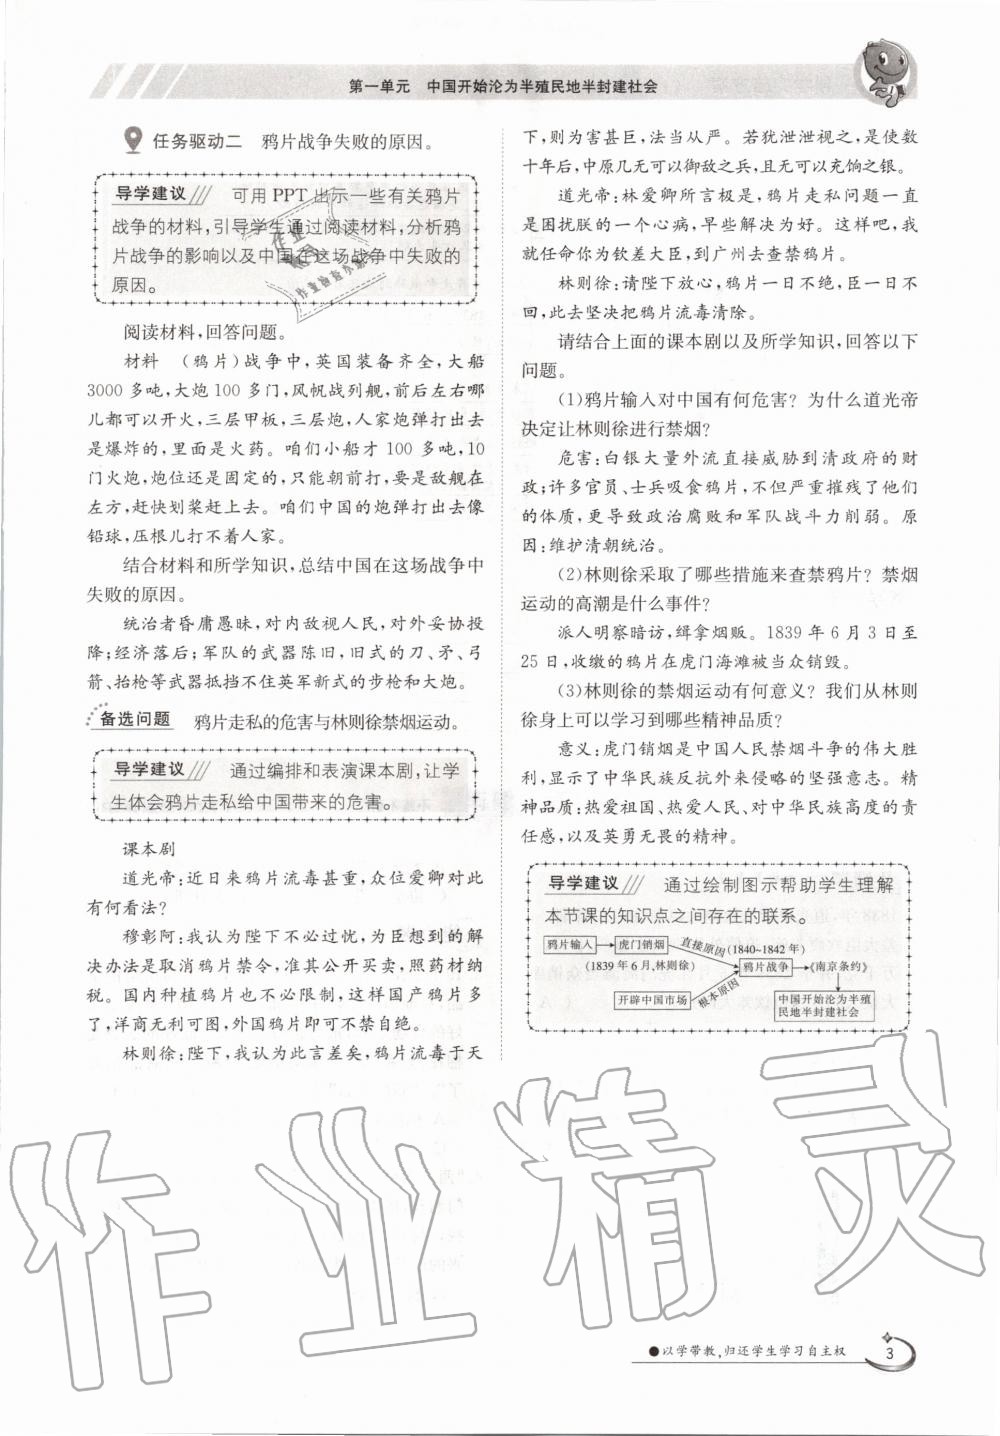 第一单元 中国开始沦为半殖民地半封建社会
任务驱动二 鸦片战争失败的原因。
导学建议 可用 PPT 出示一些有关鸦片
战争的材料,引导学生通过阅读材料,分析鸦
片战争的影响以及中国在这场战争中失败的
原因。
阅读材料,回答问题。
材料 (鸦片)战争中,英国装备齐全,大船
3000 多吨,大炮 100 多门,风帆战列舰,前后左右哪
儿都可以开火,三层甲板,三层炮,人家炮弹打出去
是爆炸的,里面是火药。咱们小船才 100 多吨,10
门火炮,炮位还是固定的,只能朝前打,要是敌舰在
左方,赶快划桨赶上去。咱们中国的炮弹打出去像
铅球,压根儿打不着人家。
结合材料和所学知识,总结中国在这场战争中
失败的原因。
统治者昏庸愚昧,对内敌视人民,对外妥协投
降;经济落后;军队的武器陈旧,旧式的刀、矛、弓
箭、抬枪等武器抵挡不住英军新式的步枪和大炮。
备选问题 鸦片走私的危害与林则徐禁烟运动。
导学建议 通过编排和表演课本剧,让学
生体会鸦片走私给中国带来的危害。
课本剧
道光帝:近日来鸦片流毒甚重,众位爱卿对此
有何看法?
穆彰阿:我认为陛下不必过忧,为臣想到的解
决办法是取消鸦片禁令,准其公开买卖,照药材纳
税。国内种植鸦片也不必限制,这样国产鸦片多
了,洋商无利可图,外国鸦片即可不禁自绝。
林则徐:陛下,我认为此言差矣,鸦片流毒于天
下,则为害甚巨,法当从严。若犹泄泄视之,是使数
十年后,中原几无可以御敌之兵,且无可以充饷之银。
道光帝:林爱卿所言极是,鸦片走私问题一直
是困扰朕的一个心病,早些解决为好。这样吧,我
就任命你为钦差大臣,到广州去查禁鸦片。
林则徐:请陛下放心,鸦片一日不绝,臣一日不
回,此去坚决把鸦片流毒清除。
请结合上面的课本剧以及所学知识,回答以下
问题。
(1)鸦片输入对中国有何危害?为什么道光帝
决定让林则徐进行禁烟?
危害:白银大量外流直接威胁到清政府的财
政;许多官员、士兵吸食鸦片,不但严重摧残了他们
的体质,更导致政治腐败和军队战斗力削弱。原
因:维护清朝统治。
(2)林则徐采取了哪些措施来查禁鸦片?禁烟
运动的高潮是什么事件?
派人明察暗访,缉拿烟贩。1839 年 6 月 3 日至
25 日,收缴的鸦片在虎门海滩被当众销毁。
(3)林则徐的禁烟运动有何意义?我们从林则
徐身上可以学习到哪些精神品质?
意义:虎门销烟是中国人民禁烟斗争的伟大胜
利,显示了中华民族反抗外来侵略的坚强意志。精
神品质:热爱祖国、热爱人民、对中华民族高度的责
任感,以及英勇无畏的精神。
导学建议 通过绘制图示帮助学生理解
本节课的知识点之间存在的联系。
鸦片输入 虎门销烟 直接原因 (1840~1842 年)
(1839 年 6 月,林则徐) 鸦片战争 《南京条约》
开辟中国市场 根本原因 中国开始沦为半殖
民地半封建社会
作业精灵
●以学带教,归还学生学习自主权 3